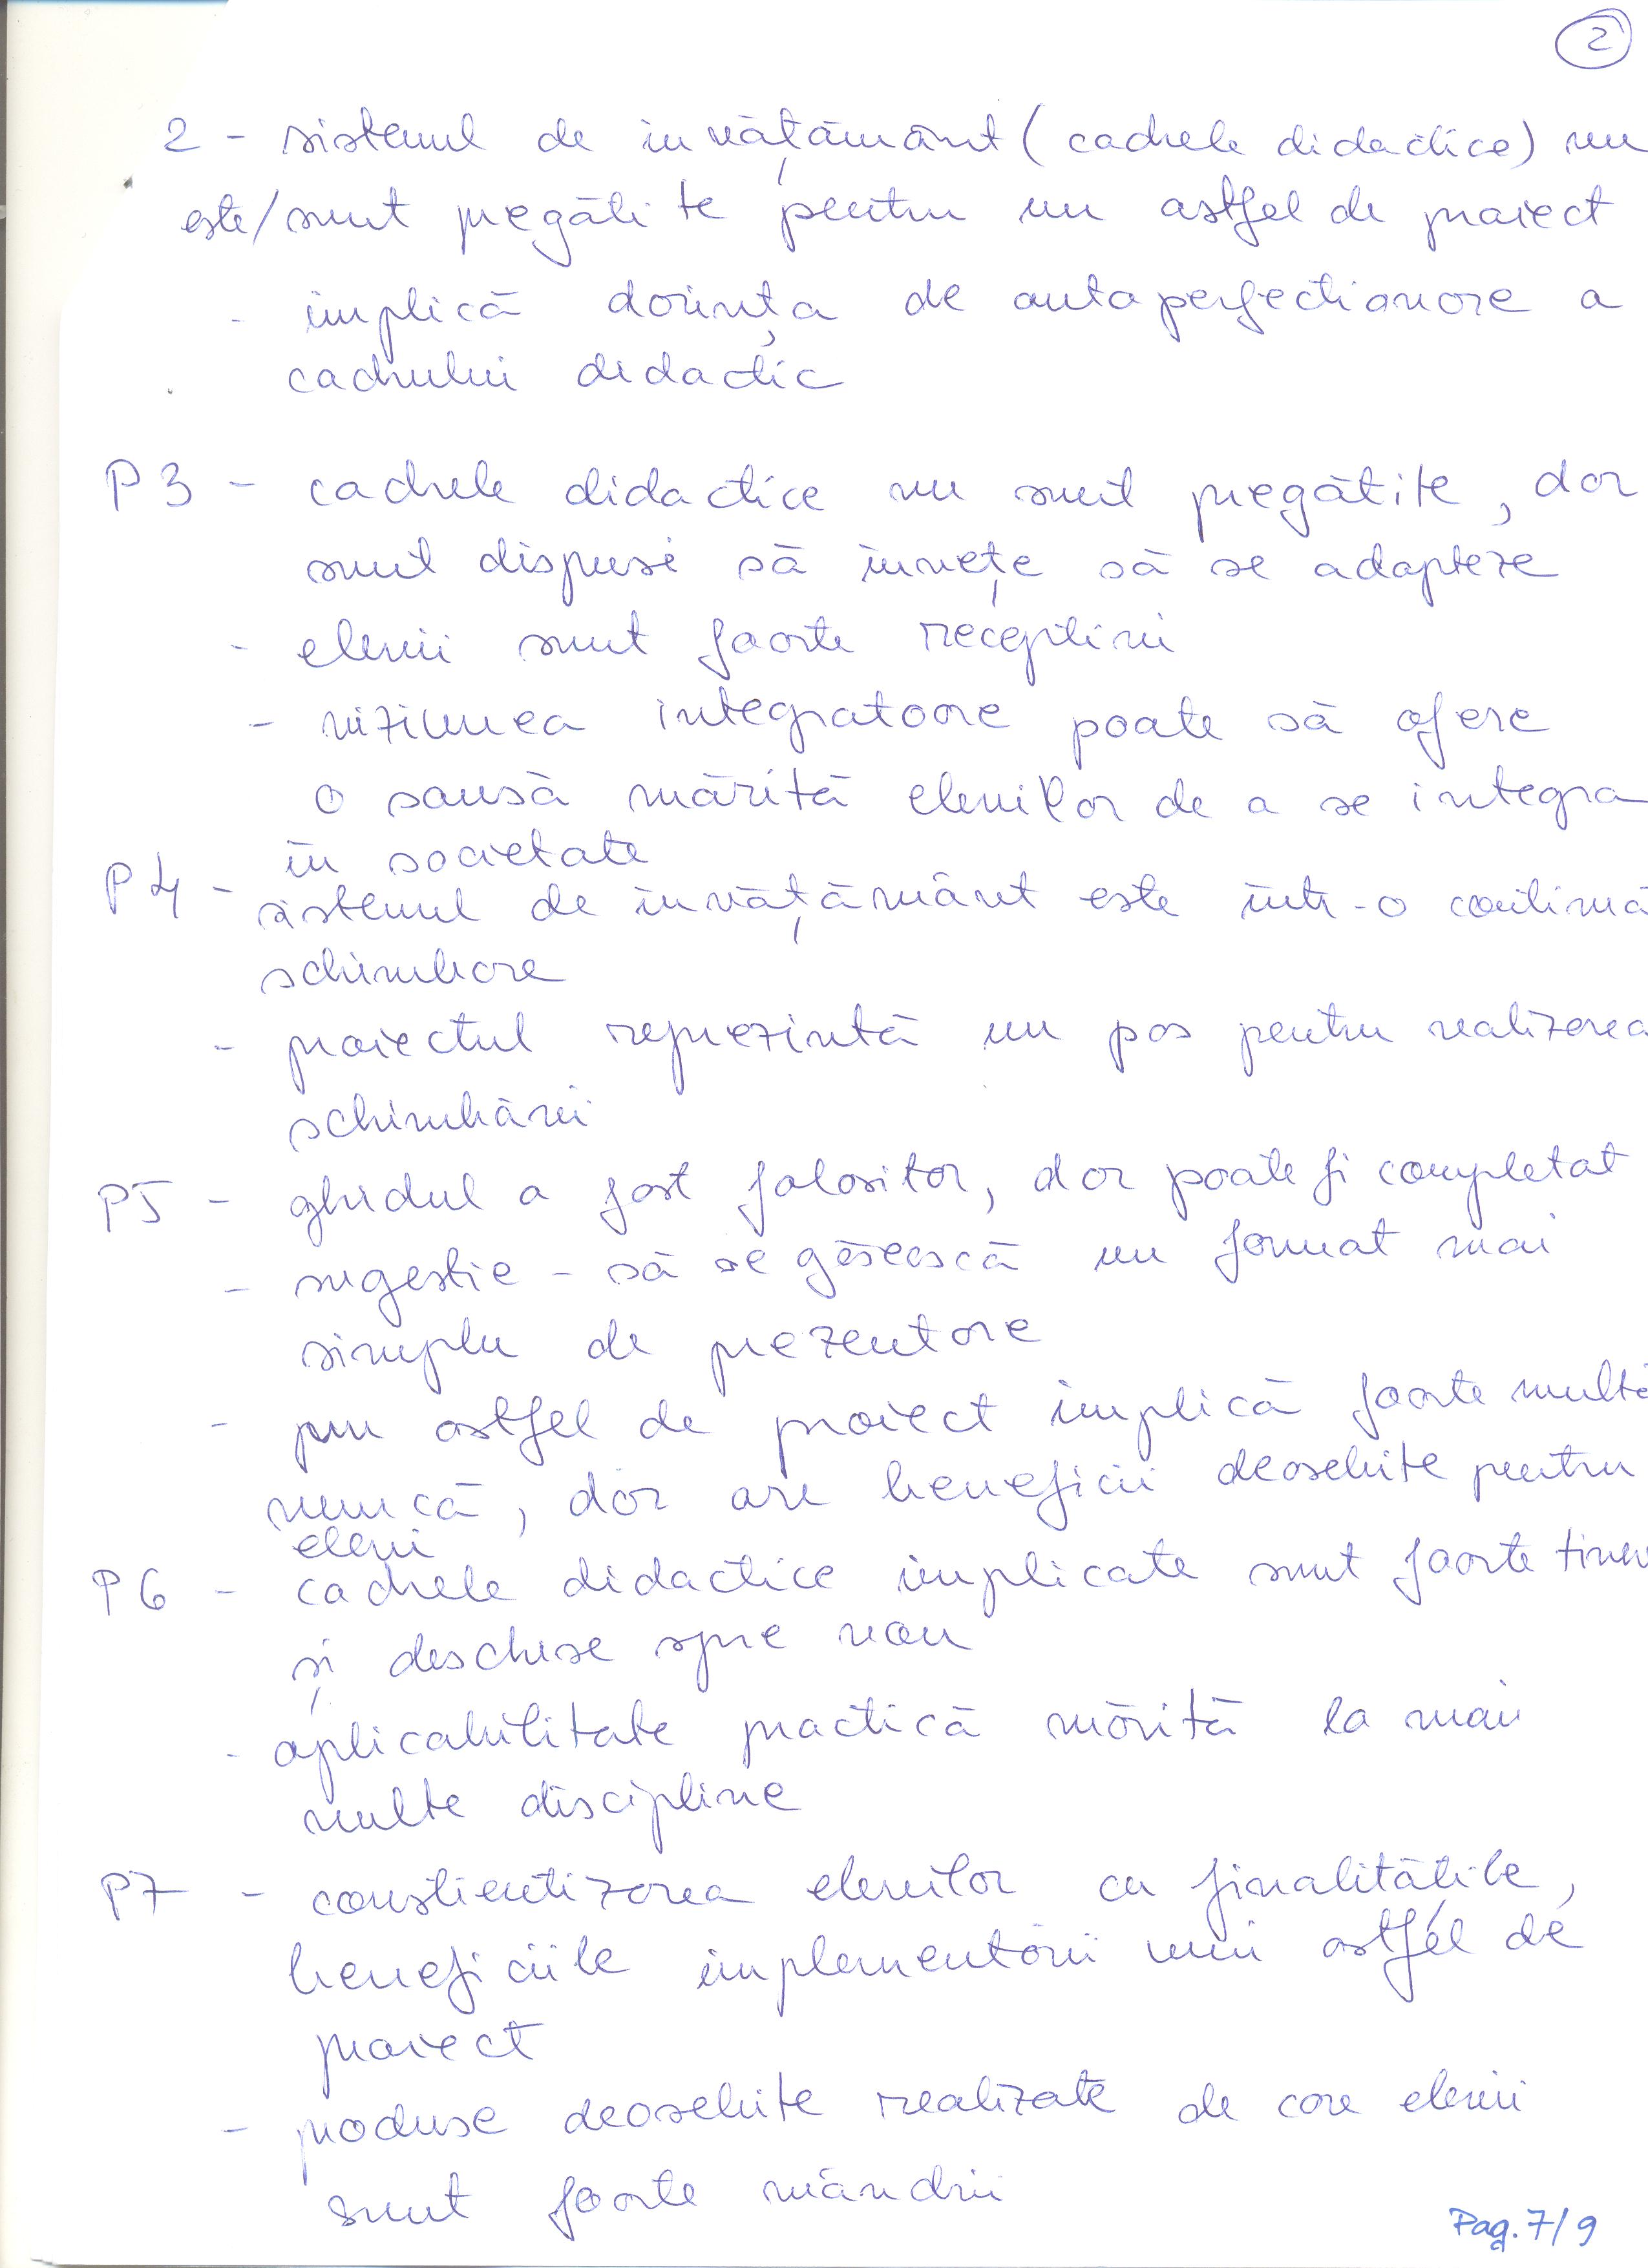 2
2 - sistemul de învățământ (cadrele didactice) nu
este/sunt pregătite pentru un astfel de proiect
- implică dorința de autoperfectionare a
cadrului didactic
P3 - cadrele didactice nu sunt pregătite, dar
sunt dispuse să învețe să se adapteze
- elevii sunt foarte receptivi
- viziunea integratoare poate să ofere
o sansă mărită elevilor de a se integra
în societate
P4 - sistemul de învățământ este într-o continuă
schimbare
- proiectul reprezintă un pas pentru realizarea
schimbării
P5 - ghidul a fost folositor, dar poate fi completat
- sugestie - să se găsească un format mai
simplu de prezentare
- un astfel de proiect implică foarte multă
muncă, dar are beneficii deosebite pentru
elevi
P6 - cadrele didactice implicate sunt foarte tinere
și deschise spre nou
- aplicabilitate practică mărită la mai
multe discipline
P7 - constientizarea elevilor cu finalitățile,
beneficiile implementării unui astfel de
proiect
- produse deosebite realizate de care elevii
sunt foarte mândrii
Pag. 7/9